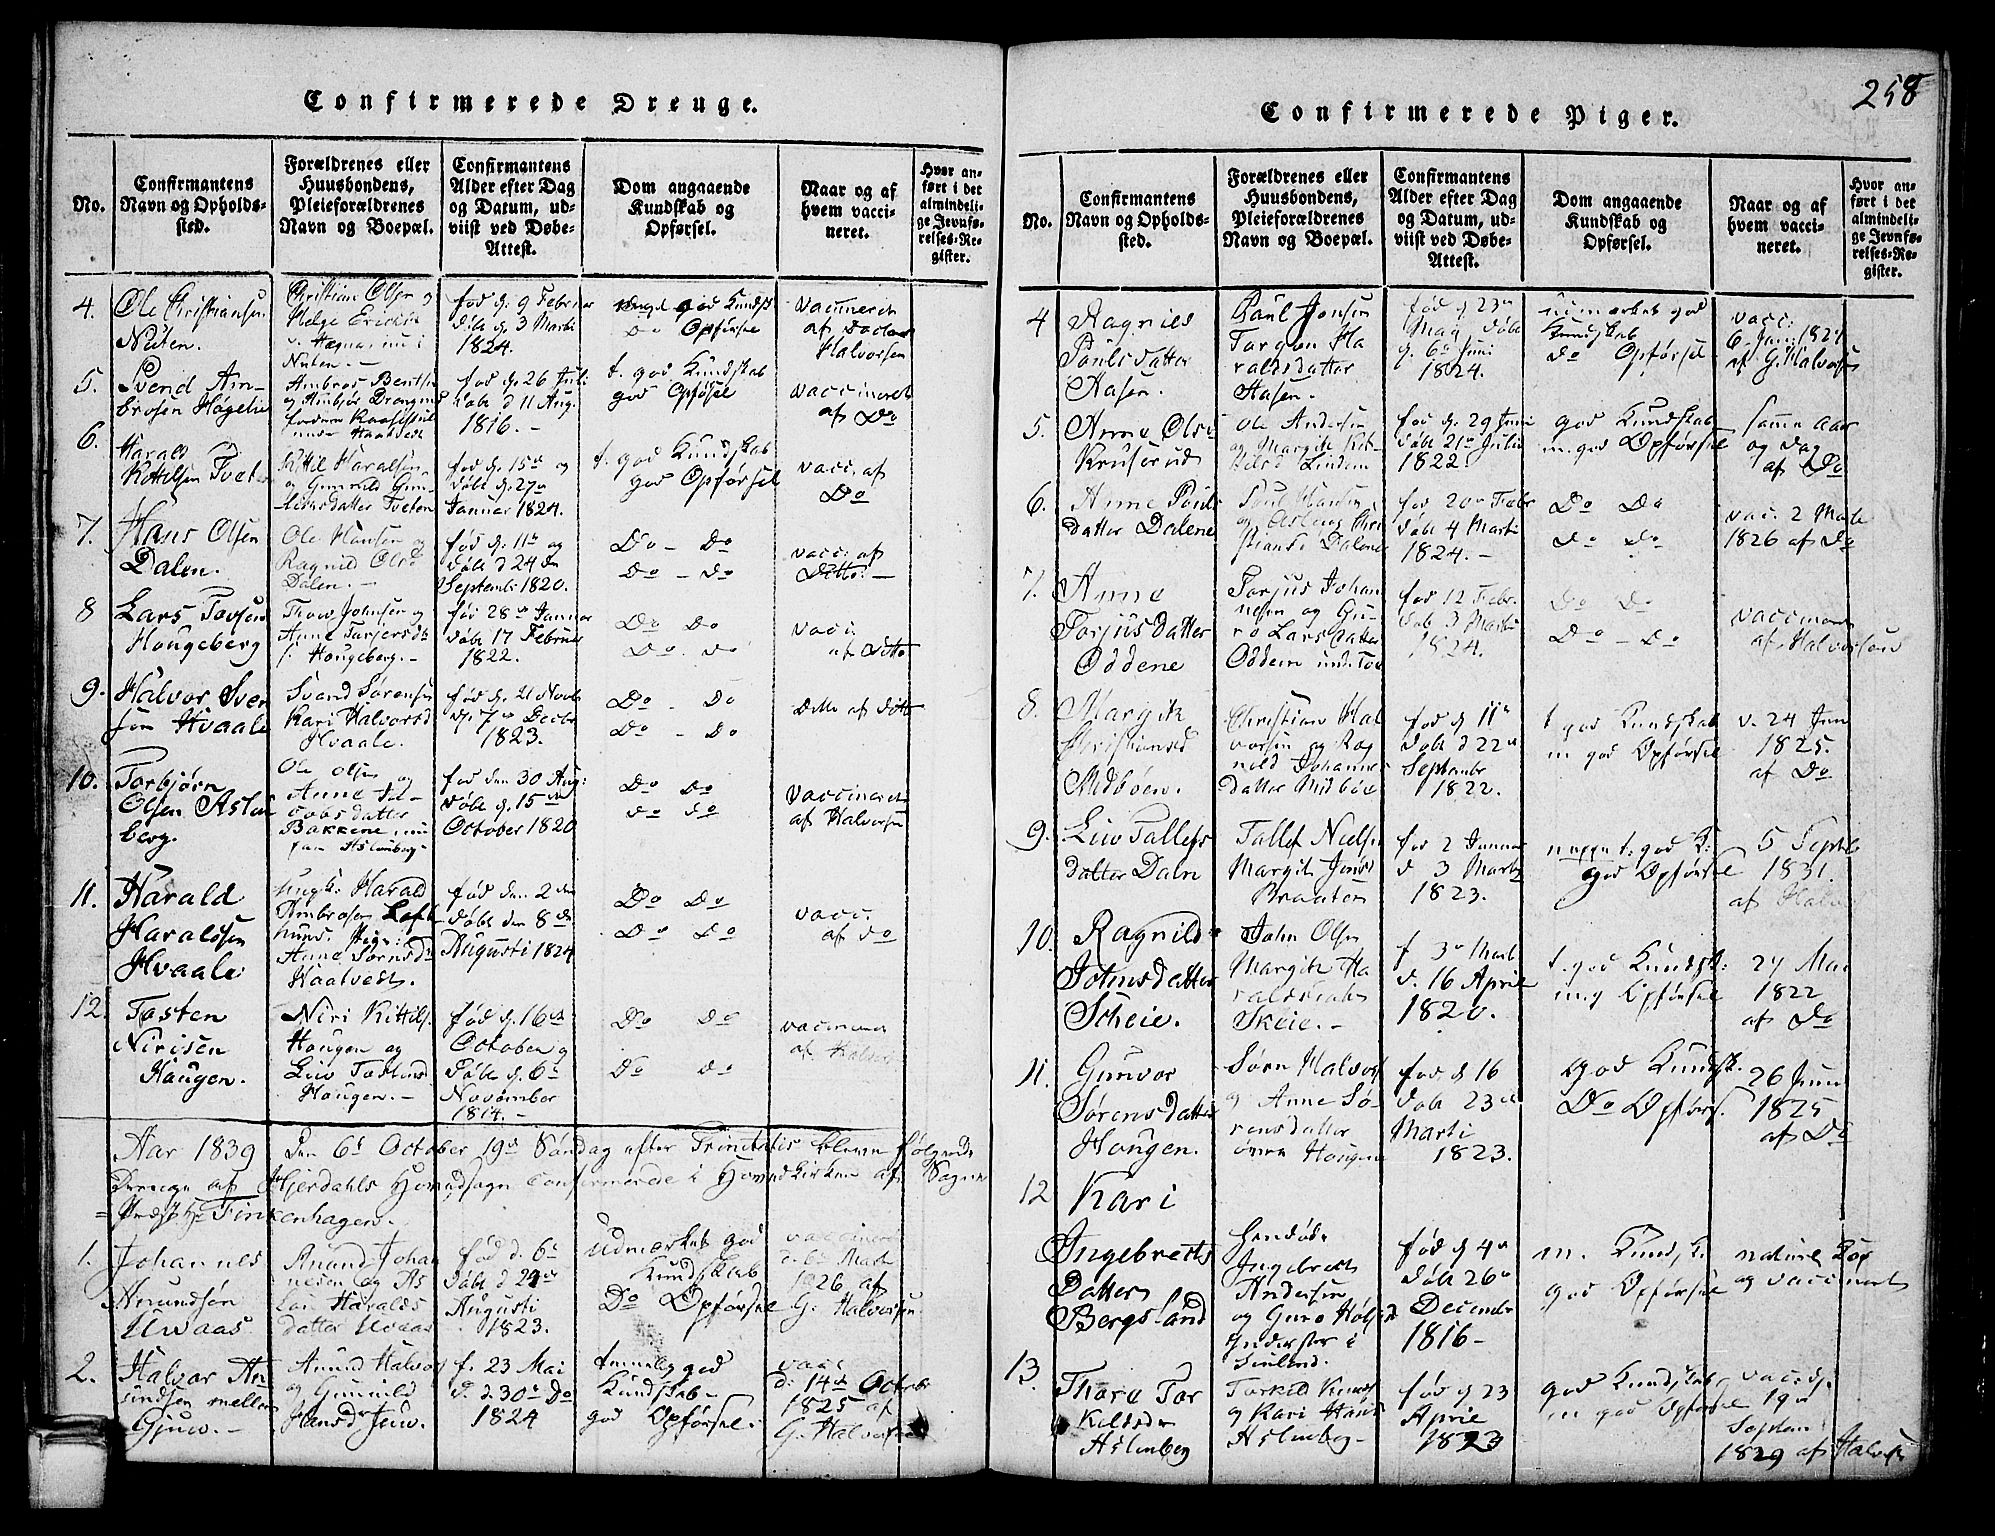 Confirmerede Drenge.
No.
Confirmantens
Navn og Opholds-
sted.
Forældrenes eller
Huusbondens,
Pleieforældrenes
Navn og Boepæl.
Confirmantens
Alder efter Dag
og Datum, ud-
viist ved Døbe-
Attest.
Dom angaaende
Kundskab og
Opførsel.
Naar og af
hvem vacci-
neret.
Hvor an-
ført i det
almindeli-
ge Jevnfø-
relses-Re-
gister.
4.
Ole Christiansen
Nuten.
Christian Olsen og
Helge
nu i
Nuten.
fød d. 9 Februar
døbt d. 3 Marti
1824.
god Kundsk
Do Opførsel
vaccineret
af
Halvorsen
5.
Svend Am-
brosen
Ambros Bentsen
og
fød d. 26 Juli
døbt d 11 Aug.
1816. -
t. god Kundskab
god Opførsel
vaccineret
af Do
6.
Harald
Kittilsen Tveten
Kittil Haralsen
og Gunnild Gun-
datter Tveten
fød d. 15de og
døbt d. 27de
Januar 1824.
t. god Kundskab
god Opførsel
vacc. af
Do
7.
Hans Olsen
Dalen.
Ole Hansen og
Ragnild Olsd
Dalen. -
fød d. 11te og
døbt d 24 de
Septembr 1820.
Do - Do
Do - do
vacc: af
Ditto. -
8
Lars Tovsen
Hougeberg
Thov Johnsen og
Anne
Hougeberg. -
fød 28de Januar
døbt 17 Februar
1822.
Do Do
Do. do
vacc:
af Ditto
9.
Halvor Sven
sen Hvaale
Svend Sørensen
Kari Halvorsd
Hvaale.
fød d. 21 Novbr
d. 7de Decbr
1823.
Do - Do
Do - Do
Ditto af ditto
10.
Torbjørn
Olsen Aslen
berg.
Ole Olsen og
Anne
datter
Bakkene, nu
paa Aslenberg -
fød den 30 Aug:
døbt d. 15de
October 1820
Do Do
do do
vaccineret
af Halvorsen
11.
Harald
Haraldsen
Hvaale
Ungk: Harald
Ambrosen Loft
huus. Pige:
Anne Sørnsdr
Haatvedt.
fød den 2 den
døbt den 8 de
Augusti 1824
Do Do
Do Do
vacc.
af do
12.
Tosten
Nirisen
Haugen.
Niri Kittils.
Hougen og
Liv Tostens
Hougen. -
fød d. 16de
October og
døbt d. 6te
November
1814. -
Do do
Do do
vaccineret
af Halvor
Aar 1839 Den 6te October 19de Søndag efter Trinitatis bleve følgende
Drenge af Hjerdahls Hovedsogn Confirmerede i Hovedkirken af Sogne
= Præst Hr Finkenhagen.
1.
Johannes
Anundsen
Uvaas
Anund Johan
nesen og As
Haralds
datter Uvaas
fød d. 6te
døbt d 24de
Augusti
1823.
Udmærket god
Kundskab
Do Opførsel
vaccineret
d. 6te Marti
1826 af
G. Halvorsen
2.
Halvor An
undsen mellem
Gjuv. -
Anund Halvors
og Gunnild
Hansdr Juv.
f. 23 Mai
d. d. 30te Do
1824
temmelig god
Kundskab -
god Opførsel.
vacc
d: 14de October
1825 af
G. Halvorsen
258
Confirmerede Piger.
No.
Confirmantens
Navn og Opholds-
sted.
Forældrenes eller
Huusbondens,
Pleieforældrenes
Navn og Boepæl.
Confirmantens
Alder efter Dag
og Datum, ud-
viist ved Døbe-
Attest.
Dom angaaende
Kundskab og
Opførsel.
Naar og af
hvem vacci-
neret.
Hvor an-
ført i det
almindeli-
ge Jevnfø-
relses-Re-
gister.
4
Aagnies
Pouls datter
Aasen.
Paul Jonsen
Torgon Ha
raldsdatter
Aasen.
fød d 23de
Maj døbt
d. 6te Juni
1824.
udmærket god
Kundskab
do Opførsel
vacc:
6 Jan: 1827
af G. Halvorsen
5.
Anne Ols
Kruserud
Ole Andersen
og Margit Kit-
tilsd Linden
fød d. 29 Juni
døbt 21de Julii
1822.
god Kundskab
m. god Opførsel
samme Aar
og dag
af Do
6.
Anne Pouls
datter Dalene
Poul Hansen
og Aslaug Chri
stiansd Dalene
fød 20de Febr
døbt 4 Marti
1824. -
Do Do
Do do
vacc. 2 Mai
1826 af Do
7.
Anne
Torjus datter
Oddene
Torjus Johan
nesen og Gu-
ro Larsdatter
fød 12 Febr.
døb 3 Marti
1824.
Do Do
Do - do
vaccineret
af Halvorsen
8.
Margit
Christiansd
Midbøen.
Christian Hal
vorsen og Rag
nild Johannes
datter Midbøe
fød d 11te
døbt d 22de
Septembr
1822.
t god Kundskab
m god Opførsel
v. 24 Juni
1825.
af Do
9.
Liv Tallefs
datter Dalen
Tallef Nielsen
Margit Jonsd
Braaten
fød 2 Januar
d 3 Marti
1823.
neppe t. god K:
god Opførsel
5 Septb
1831.
af Halv
10.
Ragnild
Johnsdatter
Scheie.
John Olsen
Margit Ha
raldsdatter
Skeie. -
f 3de Mart
d. 16 Aprie
1820.
t. god Kundsk:
m. g Opførsel
27 Mai
1822
af Do
11.
Gunvor
Sørensdatter
Hougen.
Sørn Halvors
og Anne Sø-
rensdatter
Hougen
fød d 16
døbt 23de
Marti
1823.
god Kundsk.
Do Opførs.
26 Juni
1825
af Do
12
Kari
Ingebrets
Datter
Bergsland
Ingebret
Andersen
og Guro
fød d 4de
døbt 26de
December
1816 -
m. Kundsk.
god Opførsel
natural Kop
og vaccineret
13.
Thore Tor
Kildsdr
Aslenberg
Torkild Knuds
og Kari Hans
Aslenberg -
fød d 23
Aprie
1823
god Kundskab
m god Opførsel
vacc d.
19de
Septem
1829 af Halvors